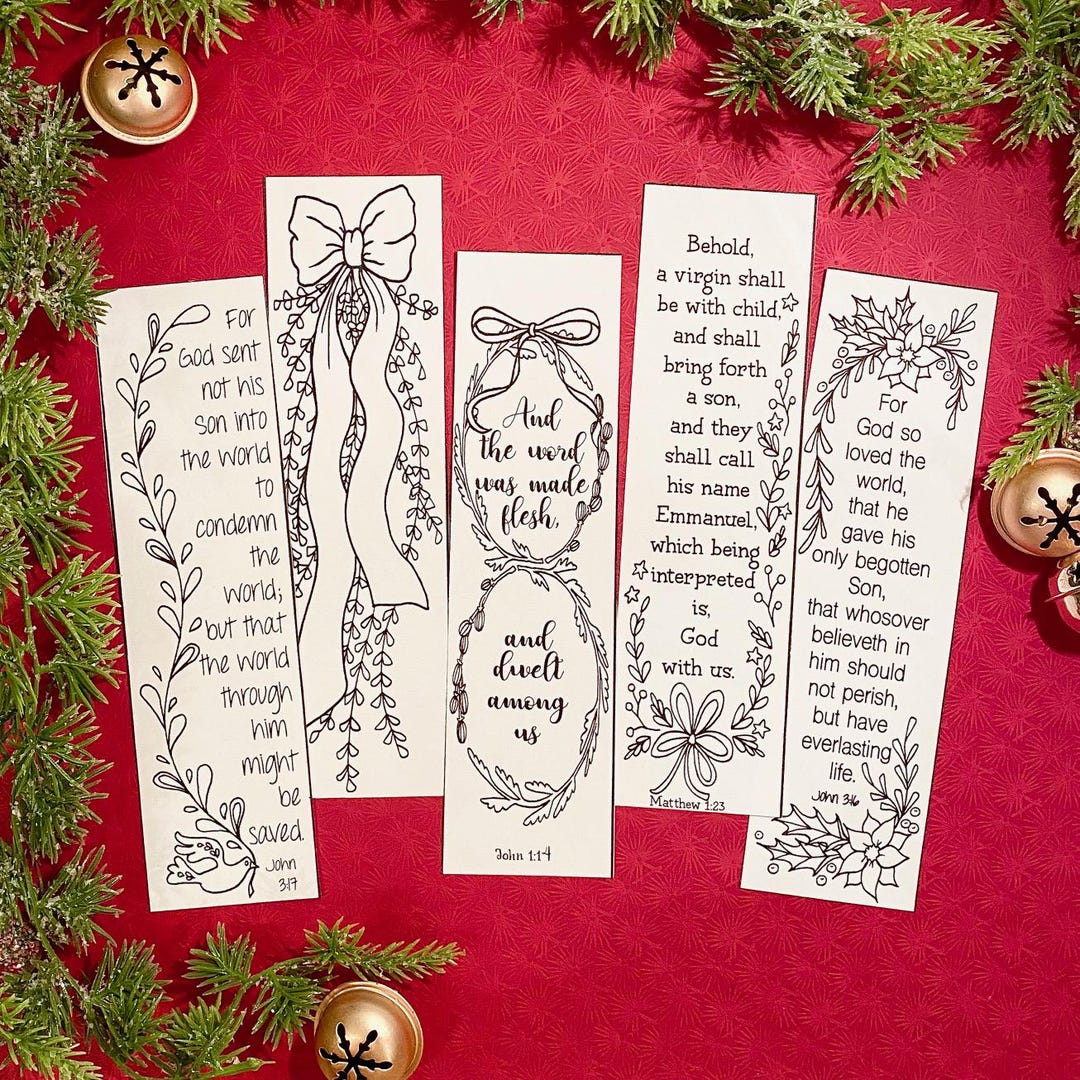 For
God sent
not his
son into
the world
to
condemn
the
world;
but that
the world
through
him
might
be
saved.
John
3:17
And
the word
was made
flesh,
and
dwelt
among
us
John 1:14
Behold,
a virgin shall
be with child,
and shall
bring forth
a son,
and they
shall call
his name
Emmanuel,
which being
interpreted
is,
God
with us.
Matthew 1:23
For
God so
loved the
world,
that he
gave his
only begotten
Son,
that whosoever
believeth in
him should
not perish,
but have
everlasting
life.
John 3:16